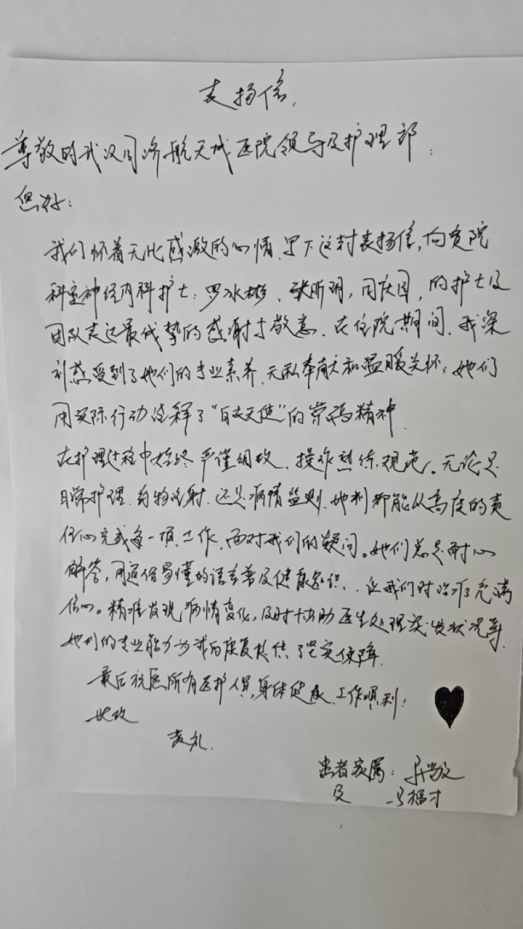 表扬信,
尊敬的武汉同济航天城医院领导及护理部:
您好:
我们怀着无比感激的心情,写下这封表扬信,向贵院
科室神经内科护士:罗冰 张昕玥,的护士及
团队表达最诚挚的感谢与敬意。在住院期间,我深
刻感受到了她们的专业素养、无私奉献和温暖关怀,她们
用实际行动诠释了“白衣天使”的崇高精神
在护理过程中始终严谨细致、操作熟练规范。无论是
日常护理、药物注射,还是病情监测,她们都能以高度的责
任心完成每一项工作,面对我们的疑问。她们总是耐心
解答,用通俗易懂的语言普及健康知识、让我们对治疗充满
信心。精准发现病情变化,及时协助医生处理突发状况等,
她们的专业能力为我的康复提供了坚实保障
最后祝愿所有医护人员,身体健康、工作顺利!
此致
敬礼
患者家属:
及